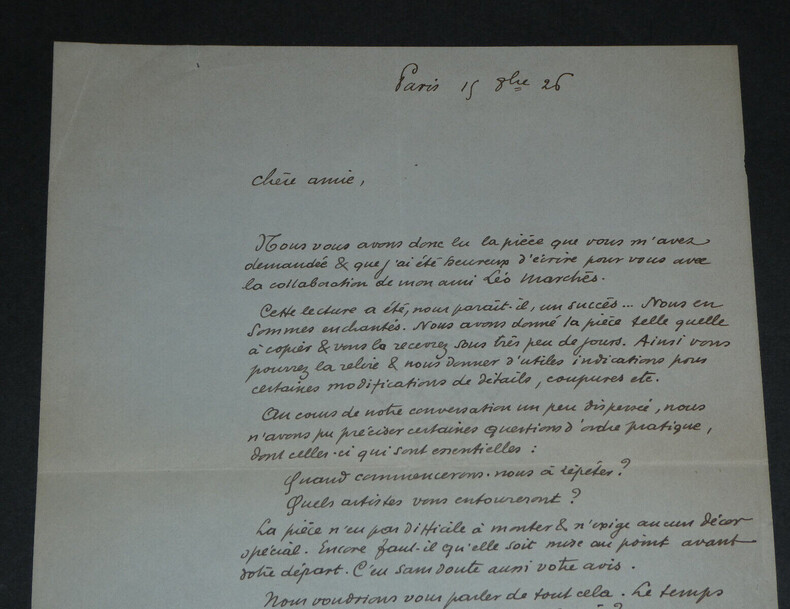 Paris 15 8bre 26
Chère amie,
Nous vous avons donc lu la pièce que vous m'avez
demandée & que j'ai été heureux d'écrire pour vous avec
la collaboration de mon ami Léo Marchès.
Cette lecture a été, nous paraît-il, un succès... Nous en
sommes enchantés. Nous avons donné la pièce telle quelle
à copier & vous la recevrez sous très peu de jours. Ainsi vous
pourrez la relire & nous donner d'utiles indications pour
certaines modifications de détails, coupures etc.
Au cours de notre conversation un peu dispersée, nous
n'avons pu préciser certaines questions d'ordre pratique,
dont celles-ci qui sont essentielles :
Quand commencerons-nous à répéter ?
Quels artistes vous entoureront ?
La pièce n'est pas difficile à monter & n'exige aucun décor
spécial. Encore faut-il qu'elle soit mise au point avant
votre départ. C'est sans doute aussi votre avis.
Nous voudrions vous parler de tout cela. Le temps